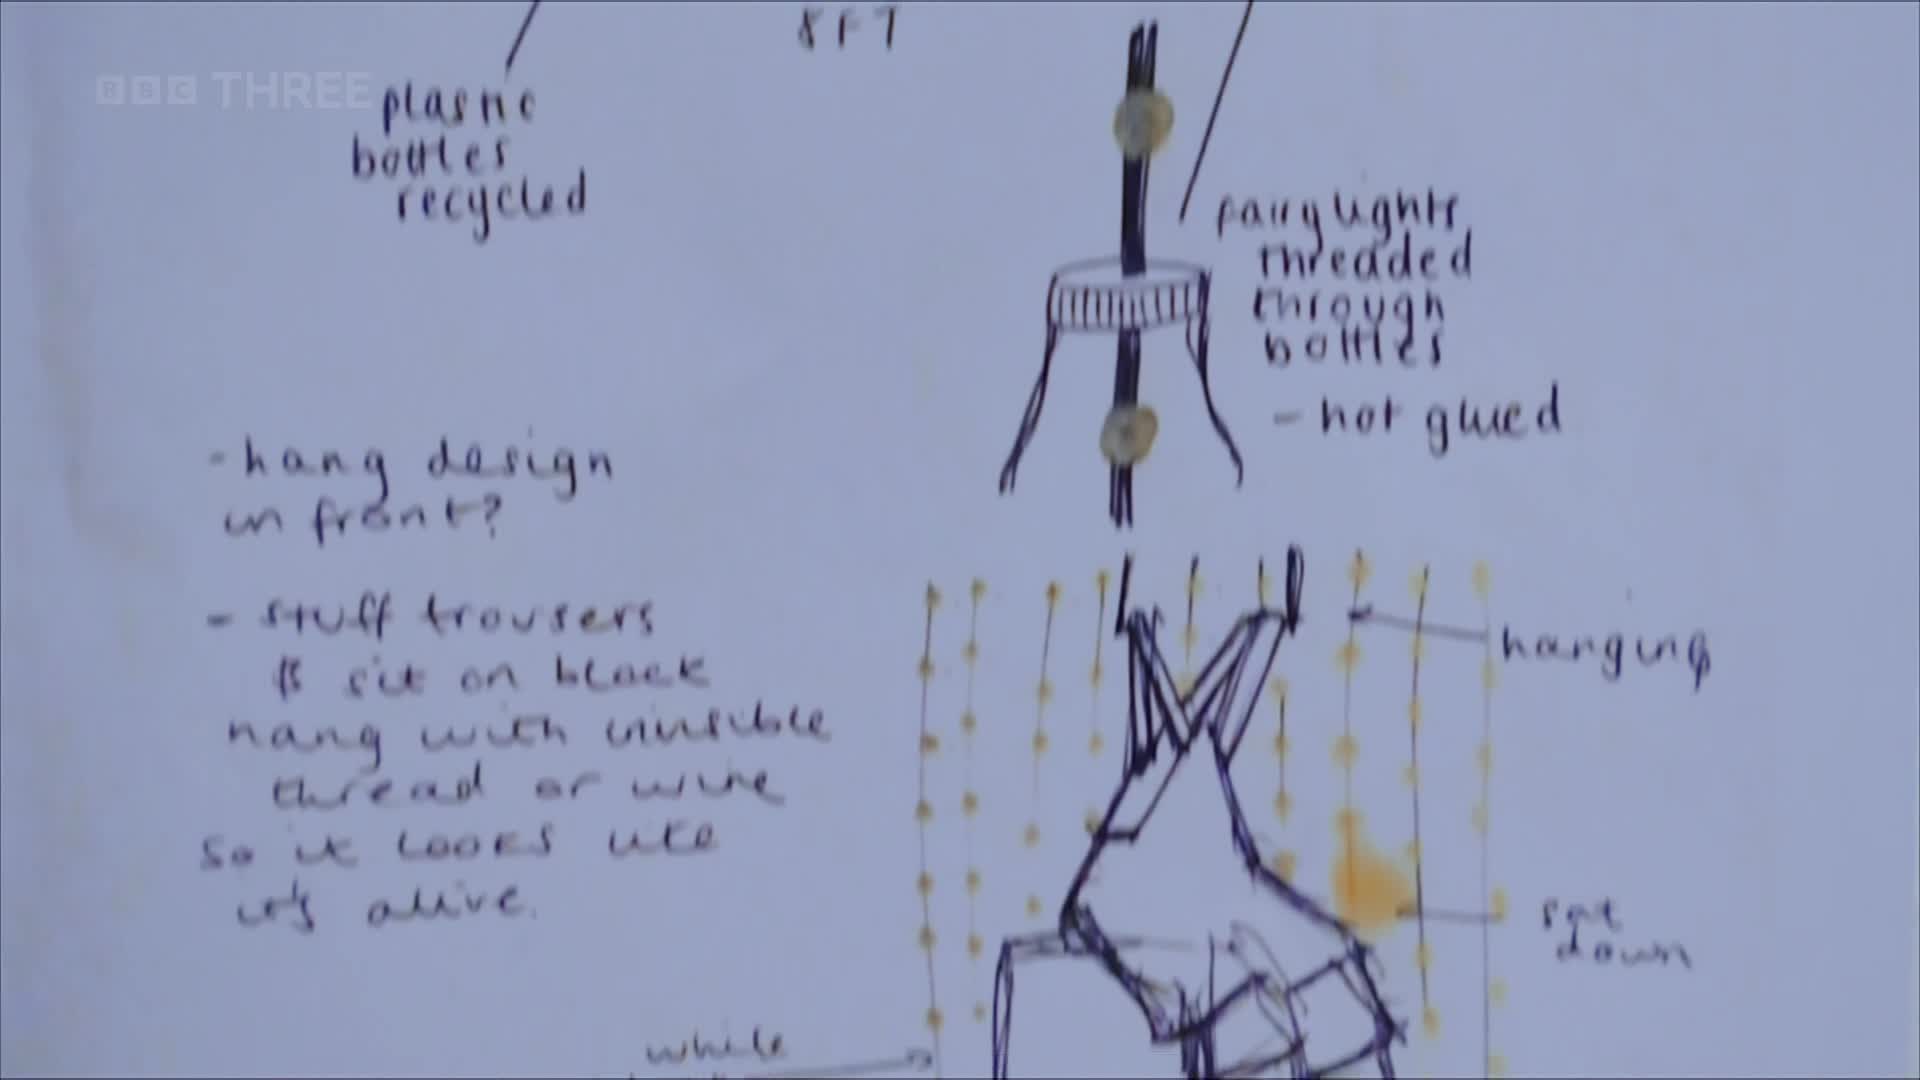 8FT
BBC THREE
plastic
bottles
recycled
fairy lights
threaded
through
bottles
- hot glued
- hang design
in front?
- stuff trousers
& sit on block
hang with invisible
thread or wire
so it looks like
it's alive.
hanging
sat
down
while